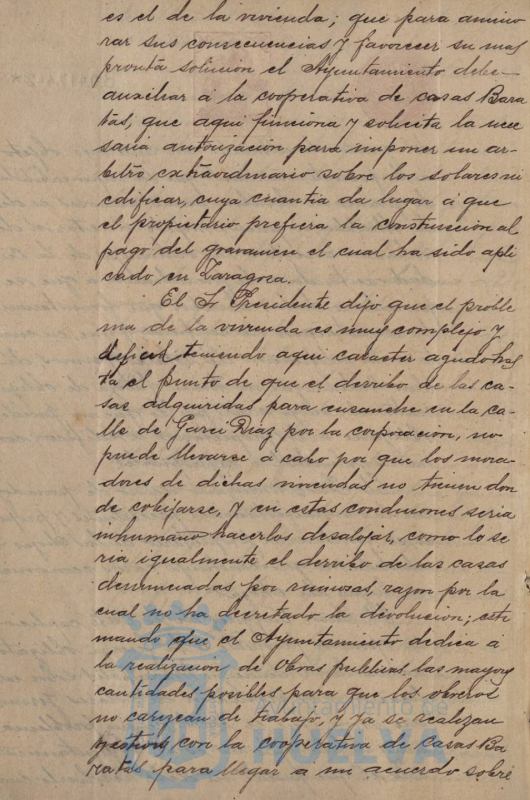 es el de la vivienda; que para amino
rar sus consecuencias y favorecer su mas
pronta solución el Ayuntamiento debe
auxiliar á la cooperativa de casas Bara
tas, que aqui funciona y solicita la nece
saria autorización para imponer un ar-
bitro extraordinario sobre los solares sin
edificar, cuya cuantia da lugar á que
el propietario prefiera la construcción al
pago del gravamen el cual ha sido apli
cado en Zaragoza.
El Sr Presidente dijo que el proble
ma de la vivienda es muy complejo y
dificil teniendo aqui caracter agudo has
ta el punto de que el derribo de las ca-
sas adquiridas para ensanche en la ca-
lle de Garci Diaz por la corporacion, no
puede llevarse á cabo por que los mora-
dores de dichas viviendas no tienen don
de cobijarse, y en estas condiciones seria
inhumano hacerlos desalojar, como lo se
ria igualmente el derribo de las casas
denunciadas por ruinosas, razon por la
cual no ha decretado la
mando que el Ayuntamiento dedica á
la realizacion de obras publicas las mayores
cantidades posibles para que los obreros
no carezcan de trabajo, y ya se realizan
gestiones con la cooperativa de Casas Ba
ratas para llegar a un acuerdo sobre
Ayuntamiento de
HUELVA